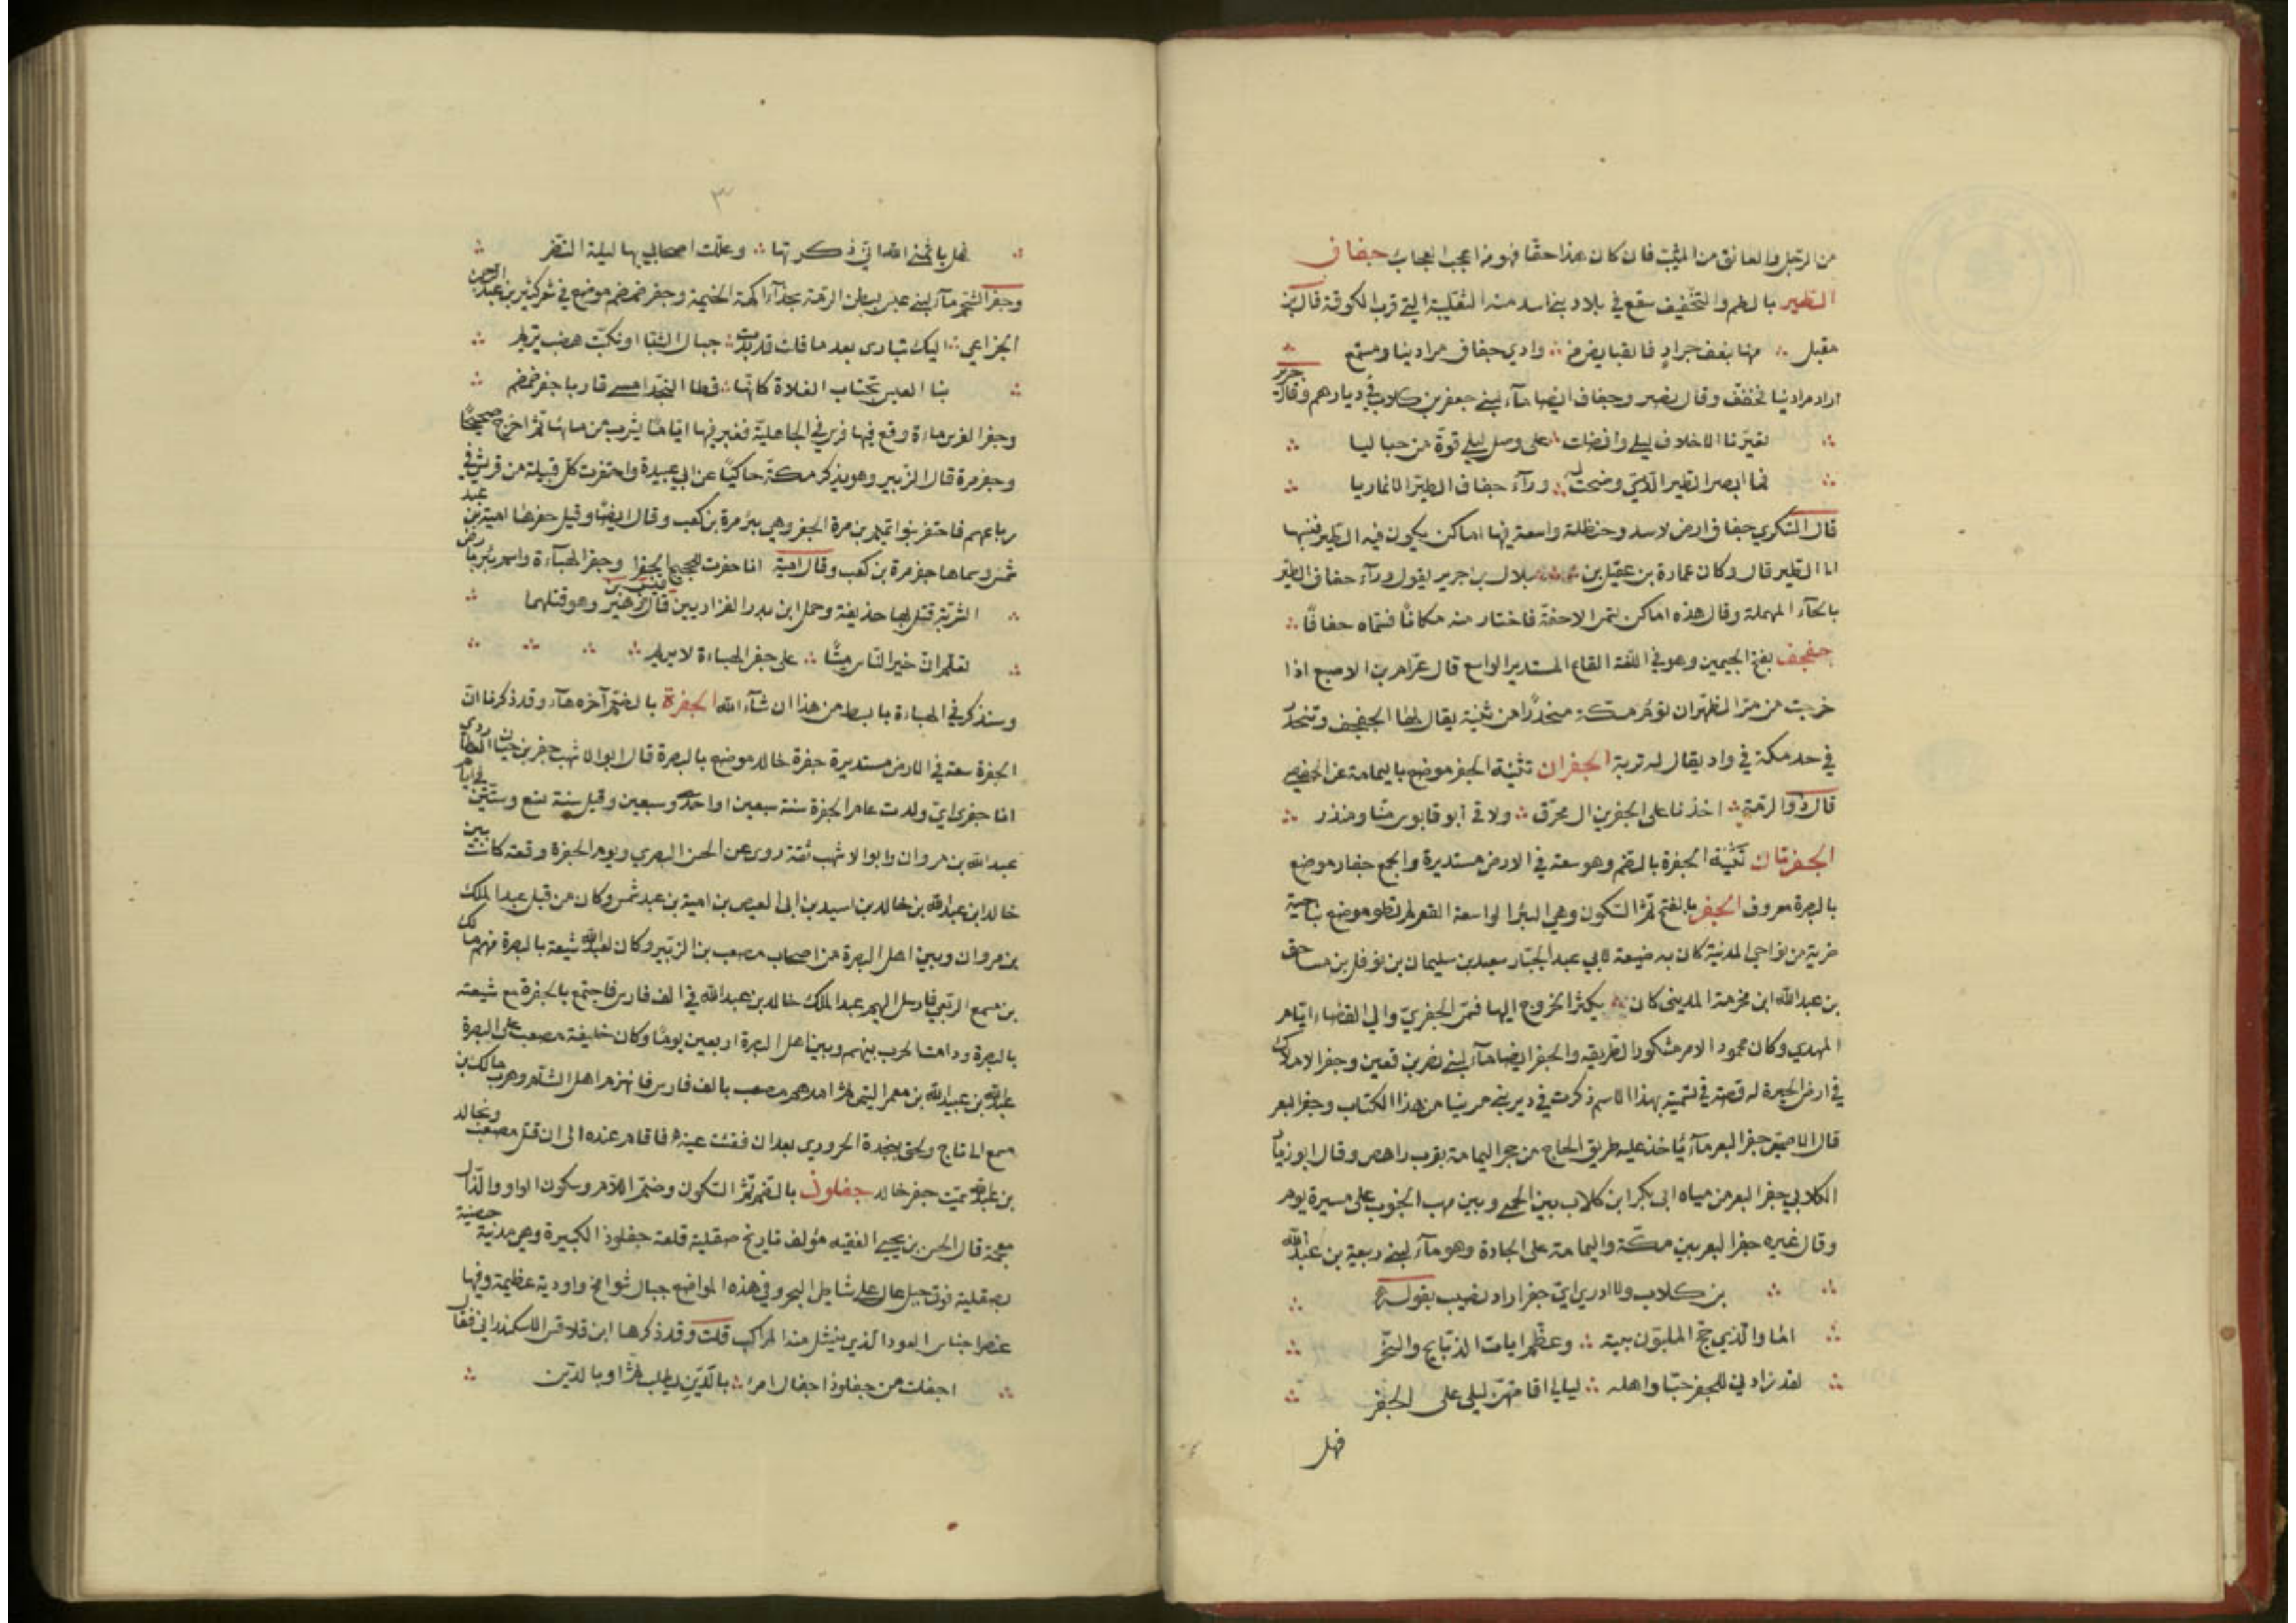 من الرجل والعانق من المثيب فان كان هذا حقا فهو من اعجب العجاب جفاف
الطير بالضم والتخفيف سقع في بلاد بني اسد منه الثعلبية التي قرب الكوفة قال بن
مقبل منها بنعف جراد فالقبايض من وادي جفاف مرادينا ومستمع
اراد مرادنيا فخفف وقال نصر وجفاف ايضا ماء لبني جعفر بن كلاب في ديارهم وقال جرير
تغيرنا الاخلاف ليلى وافضلت على وصل ليلى قوة من حباليا
فما ابصر الطير الذي وضحت له وراء جفاف الطير الا تماريا
قال السكري جفاف ارض لاسد وحنظلة واسعة فيها اماكن يكون فيه الطير فنسبها
الى الطير قال وكان عمارة بن عقيل بن بلال بن جرير يقول وراء حفاف الطير
بالحاء المهملة وقال هذه اماكن تسمى الاحفة فاختار منه مكانا فسماه حفافا
جفجف بفتح الجيمين وهو في اللغة القاع المستدير الواسع قال عرام بن الاصبع اذا
خرجت من مر الظهران تؤم مكة منحدرا من ثنية يقال لها الجفجف وتنحدر
في حد مكة في واد يقال له تربة الجفران تثنية الجفر موضع باليمامة عن الحفصي
قال ذو الرمة اخذنا على الجفرين ال محرق ولاقى ابو قابوس منا ومنذر
الجفرتان تثنية الجفرة بالضم وهو سعة في الارض مستديرة والجمع جفار موضع
بالبصرة معروف الجفر بالفتح ثم السكون وهي البئر الواسعة القعر لم تطو موضع بناحية
ضرية من نواحي المدنية كان به ضيعة لابي عبد الجبار سعيد بن سليمان بن نوفل بن مساحق
بن عبد الله ابن مخرمة المديني كان يكثر الخروج اليها فسمى الجفري والي القضاء ايام
المهدي وكان محمود الامر مشكور الطريقه والجفر ايضا ماء لبني نصر بن قعين وجفر الاملاك
في ارض الحيرة له قصة في تسمية بهذا الاسم ذكرت في دير بني مرينا من هذا الكتاب وجفر البعر
قال الاصمعي جفر البعر ماء ياخذ عليه طريق الحاج من حجر اليمامة بقرب راهص وقال ابو زياد
الكلابي جفر البعر من مياه ابى بكر ابن كلاب بين الحمى وبين مهب الجنوب على مسيرة يوم
وقال غيره جفر البعر بين مكة واليمامة على الجادة وهو ماء لبني ربيعة بن عبد الله
بن كلاب ولا ادري اي جفر اراد نصيب بقوله
اما والذي حج الملبون بيته وعظم ايامت الذبايح والنحر
لقد زادني للجفر حبا واهله ليالي اقامتهن ليلى على الجفر
فهل
٣
فهل ياثمني الله اني ذكرتها وعللت اصحابي بها ليلة النفر
وجفر الشحم ماء لبني عبس ببطن الرمة بحذاء اكمة الخيمة وجفر ضمضم موضع في شعر كثير بن عبد الرحمن
الخزاعي اليك تبارى بعد ما قلت قد بدت جبال الشبا او نكبت هضب تريم
بنا العيس تجتاب الفلاة كانها قطا النجد امسى قاربا جفر ضمضم
وجفر الفرس ماءة وقع فيها فرس في الجاهلية فغبر فيها اياما يشرب من مائها ثم اخرج صحيحا
وجفر مرة قال الزبير وهو يذكر مكة حاكيا عن ابي عبيدة واحتفرت كل قبيلة من قريش في
رباعهم فاحتفر بنو اتيم بن مرة الجفر وهي بئر مرة بن كعب وقال ايضا وقيل حفرها امية بن عبد
شمس وسماها جفر مرة بن كعب وقال امية انا حفرت للحجيج الجفرا وجفر الهباءة واسم بئر بارض
الشربة قتل بها حذيفة وحمل ابن بدر الفزاريين قال قيس بن زهير وهو قتلهما
تعلم ان خير الناس ميتا على جفر الهباءة لا يريم
وسنذكر في الهباءة بابسط من هذا ان شاء الله الجفرة بالضم آخره هاء وقد ذكرنا ان
الجفرة سعة في الارض مستديرة جفرة خالد موضع بالبصرة قال ابو الاشهب جعفر بن حيان العطاردي
انا جفري اي ولدت عام الجفرة سنة سبعين او احدى وسبعين وقيل سنة تسع وستين في ايام
عبد الله بن مروان وابو الاشهب ثقة روى عن الحسن البصري ويوم الجفرة وقعة كانت بين
خالد ابن عبد الله بن خالد بن اسيد بن ابى العيص بن امية بن عبد شمس وكان من قبل عبد الملك
بن مروان وبين اهل البصرة من اصحاب مصعب بن الزبير وكان لعبد الله شيعة بالبصرة منهم مالك
بن مسمع الربعي فارسل اليهم عبد الملك خالد بن عبد الله في الف فارس فاجتمع بالجفرة مع شيعته
بالبصرة ودامت الحرب بينهم وبين اهل البصرة اربعين يوما وكان خليفة مصعب على البصرة
عبد الله بن عبيد الله بن معمر التيمي ثم امدهم مصعب بالف فارس فانهزم اهل الشام وهرب مالك بن
مسمع الى تاج ولحق بنجدة الحروري بعد ان فقئت عينه فاقام عنده الى ان قتل مصعب وبخالد
بن عبد الله سميت جفر خالد جفلوذ بالضم ثم السكون وضم اللام وسكون الواو والذال
معجمة قال الحسن بن يحيى الفقيه مؤلف تاريخ صقلية قلعة جفلوذ الكبيرة وهي مدنية حصنية
بصقلية فوق جبل عال على شاطئ البحر وفي هذه المواضع جبال شوامخ واودية عظيمة وفيها
عنصر اجناس العود الذي ينشئل منه المراكب قلت وقد ذكرها ابن قلاقس الاسكندراني فقال
اجفلت من جفلوذ اجفال امرئ بالدين يطلب ثم او بالدين